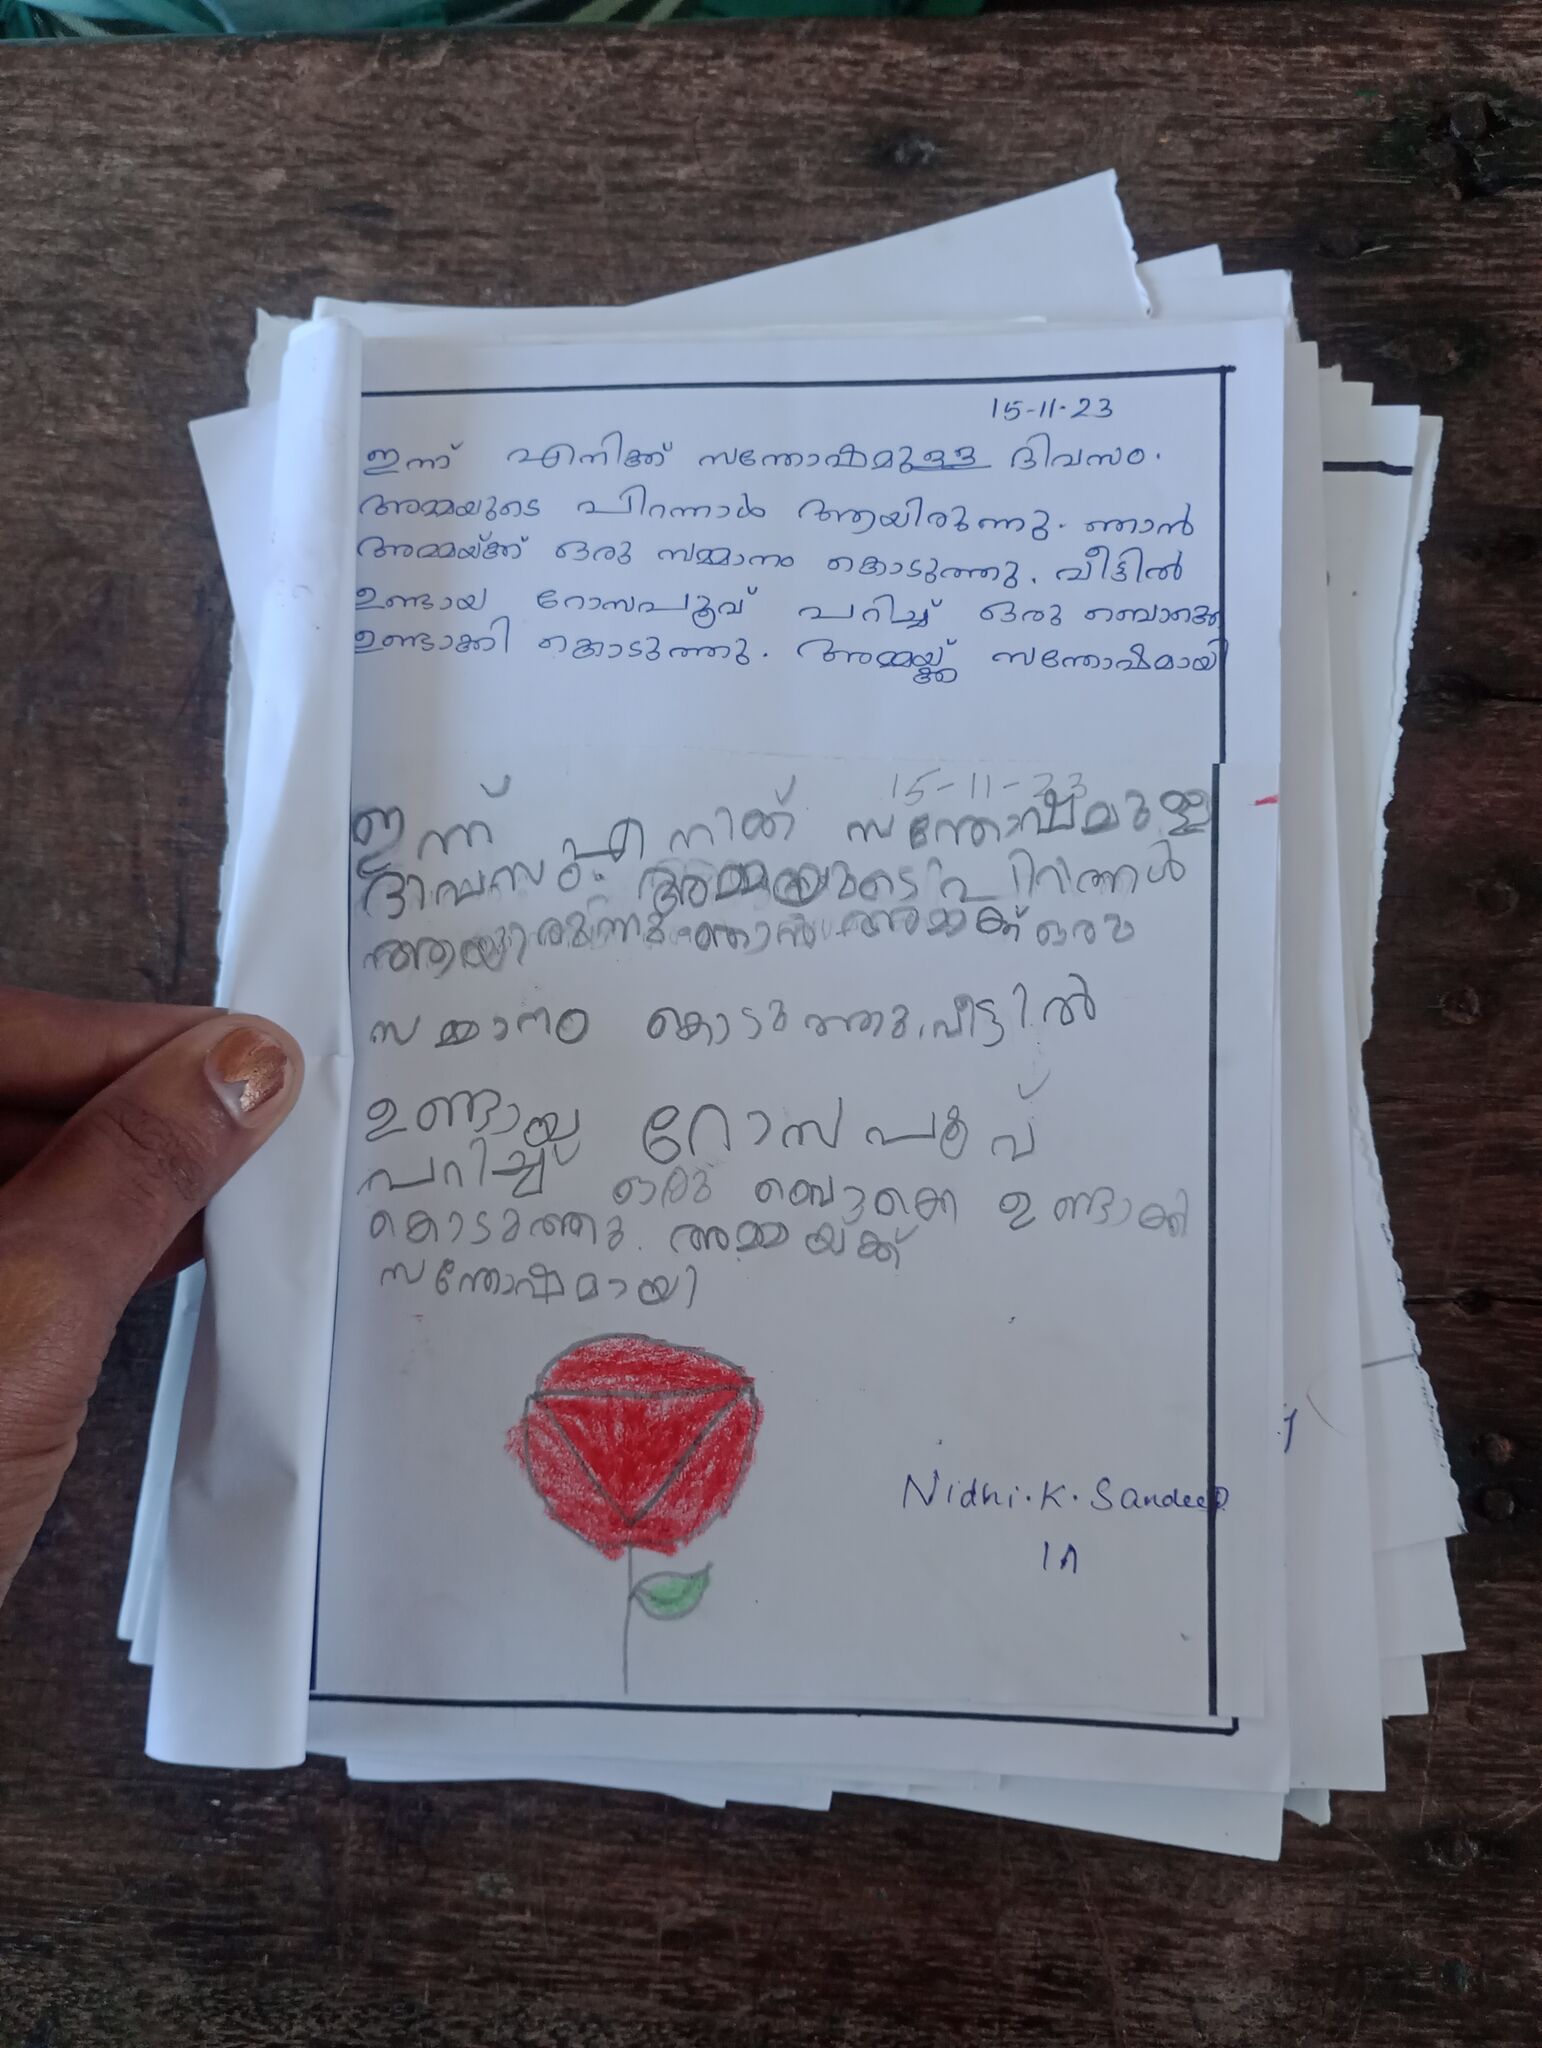 15-11-23
ഇന്ന് എനിക്ക് സന്തോഷമുള്ള ദിവസം.
അമ്മയുടെ പിറന്നാൾ ആയിരുന്നു. ഞാൻ
അമ്മയ്ക്ക് ഒരു സമ്മാനം കൊടുത്തു. വീട്ടിൽ
ഉണ്ടായ റോസപൂവ് പറിച്ച് ഒരു ബൊക്കെ
ഉണ്ടാക്കി കൊടുത്തു. അമ്മയ്ക്ക് സന്തോഷമായി
15-11-23
ഇന്ന് എനിക്ക് സന്തോഷമുള്ള
ദിവസം. അമ്മയുടെ
ആയിരുന്നു ഞാൻ അമ്മക്ക് ഒരു
സമ്മാനം കൊടുത്തു. വീട്ടിൽ
ഉണ്ടായ റോസപൂവ്
പറിച്ച് ഒരു ബൊക്കെ ഉണ്ടാക്കി
കൊടുത്തു. അമ്മയ്ക്ക്
സന്തോഷമായി
Nidhi.K.Sandeep
1A